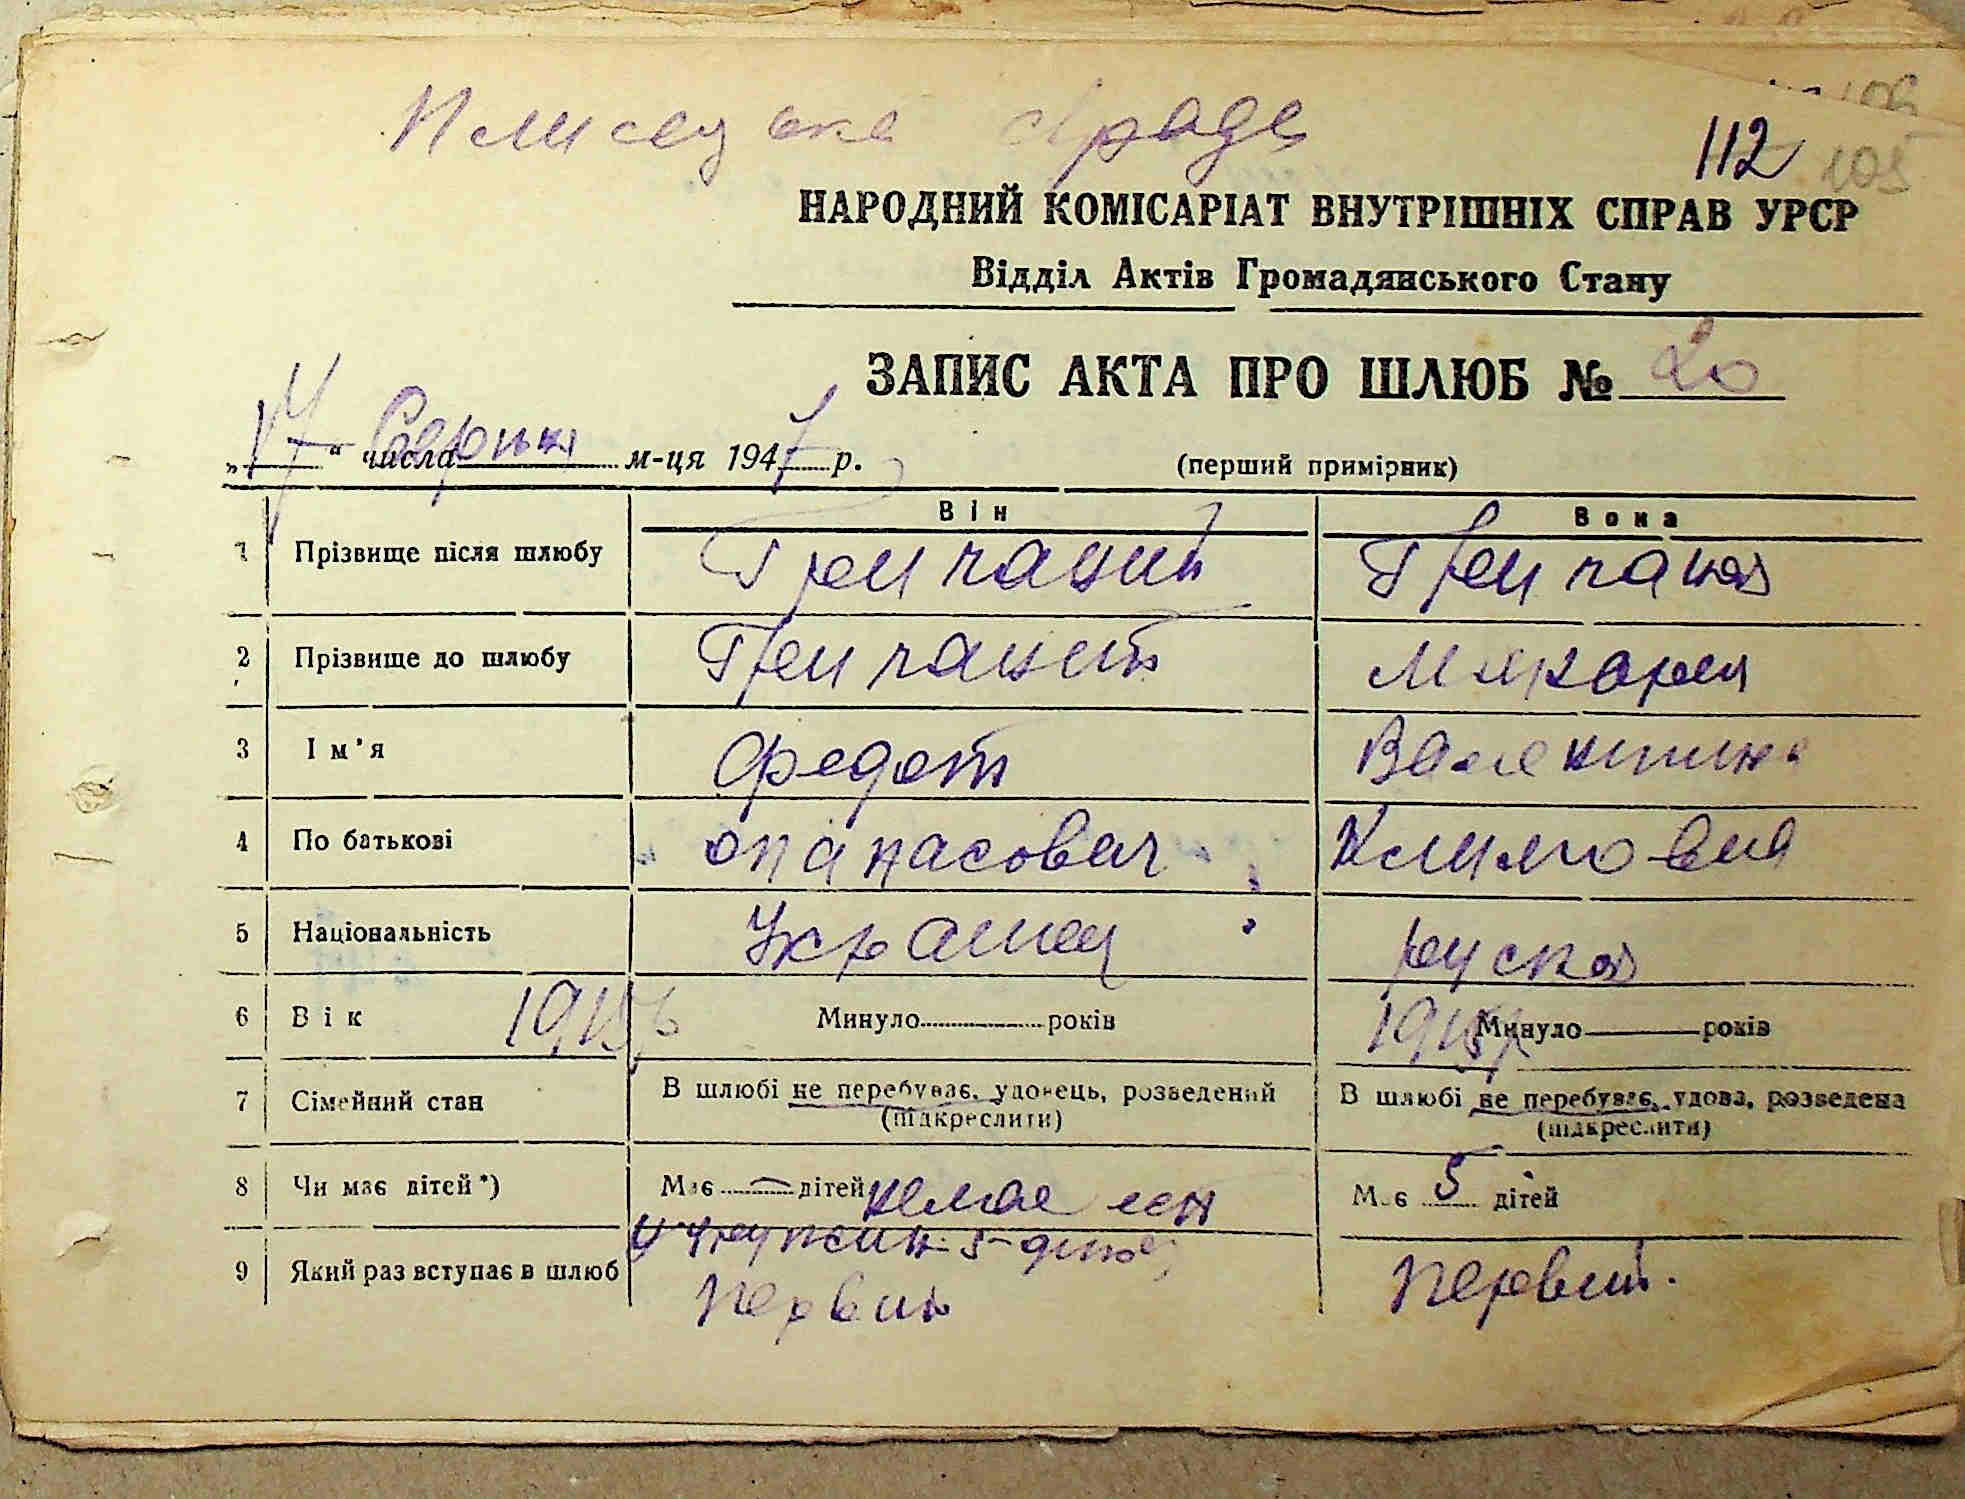 Плисецька с/рада
112 105
НАРОДНИЙ КОМІСАРІАТ ВНУТРІШНІХ СПРАВ УРСР
Відділ Актів Громадянського Стану
ЗАПИС АКТА ПРО ШЛЮБ № 20
„17“ числа Серпня м-ця 1947 р. (перший примірник)
Він Вона
1 Прізвище після шлюбу Гричаний Гричаная
2 Прізвище до шлюбу Гричаний
3 Ім'я Федот Валентина
4 По батькові опанасович Климовна
5 Національність Украинец руская
6 Вік Минуло років Минуло років
7 Сімейний стан В шлюбі не перебуває, удовець, розведений В шлюбі не перебуває, удова, розведена
(підкреслити) (підкреслити)
8 Чи має дітей*) Має — дітей немае Має 5 дітей
9 Який раз вступає в шлюб первий первий.